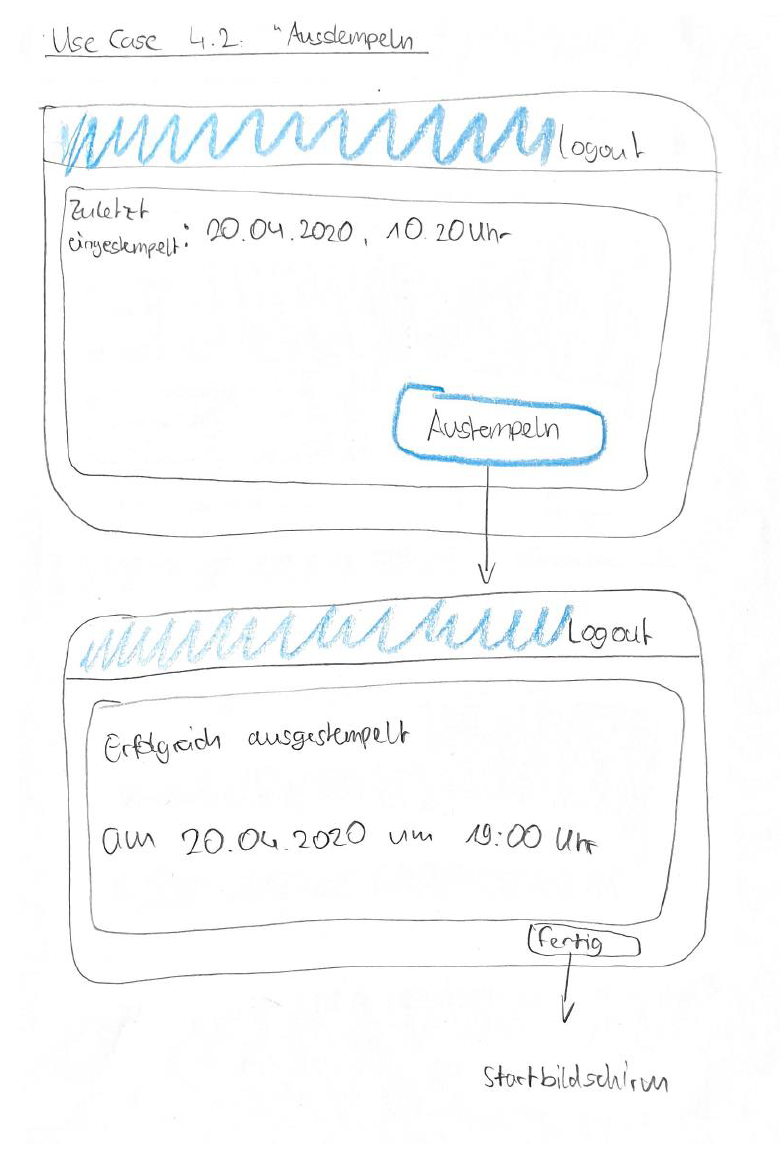 Use Case 4.2. "Ausstempeln
Logout
Zuletzt
eingestempelt: 20.04.2020, 10.20 Uhr
Austempeln
Logout
Erfolgreich ausgestempelt
am 20.04.2020 um 19:00 Uhr
fertig
Startbildschirm